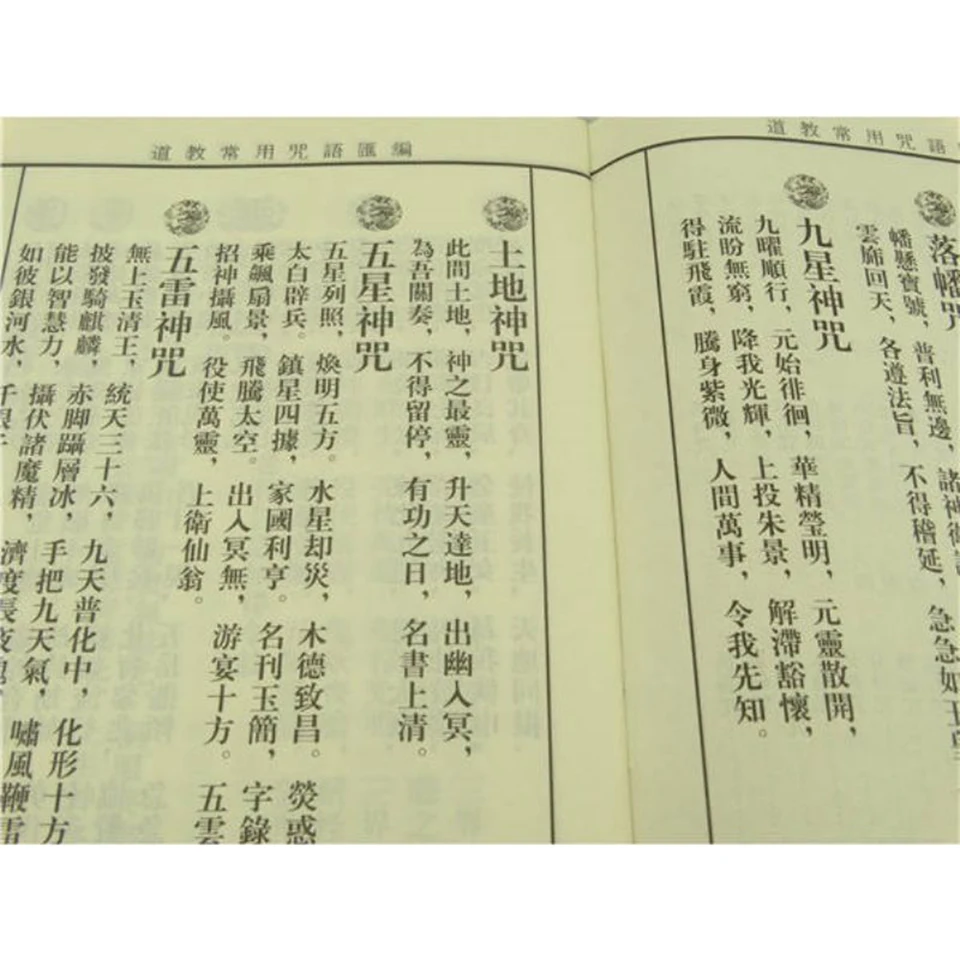 道教常用咒語
落幡咒
幡懸寶號，普利無邊，諸神衛
雲旆回天，各遵法旨，不得稽延，急急如玉皇
九星神咒
九曜順行，元始徘徊，華精瑩明，元靈散開，
流盼無窮，降我光輝，上投朱景，解滯豁懷，
得駐飛霞，騰身紫微，人間萬事，令我先知。
道教常用咒語匯編
土地神咒
此間土地，神之最靈，升天達地，出幽入冥，
為吾關奏，不得留停，有功之日，名書上清。
五星神咒
五星列照，煥明五方。水星却災，木德致昌。熒惑
太白辟兵。鎮星四據，家國利亨。名刊玉簡，字錄
乘飈扇景，飛騰太空。出入冥無，游宴十方。五雲
招神攝風。役使萬靈，上衛仙翁。
五雷神咒
無上玉清王，統天三十六，九天普化中，化形十方
披發騎麒麟，赤脚躡層冰，手把九天氣，嘯風鞭雷
能以智慧力，攝伏諸魔精，濟度長夜
如彼銀河水，千